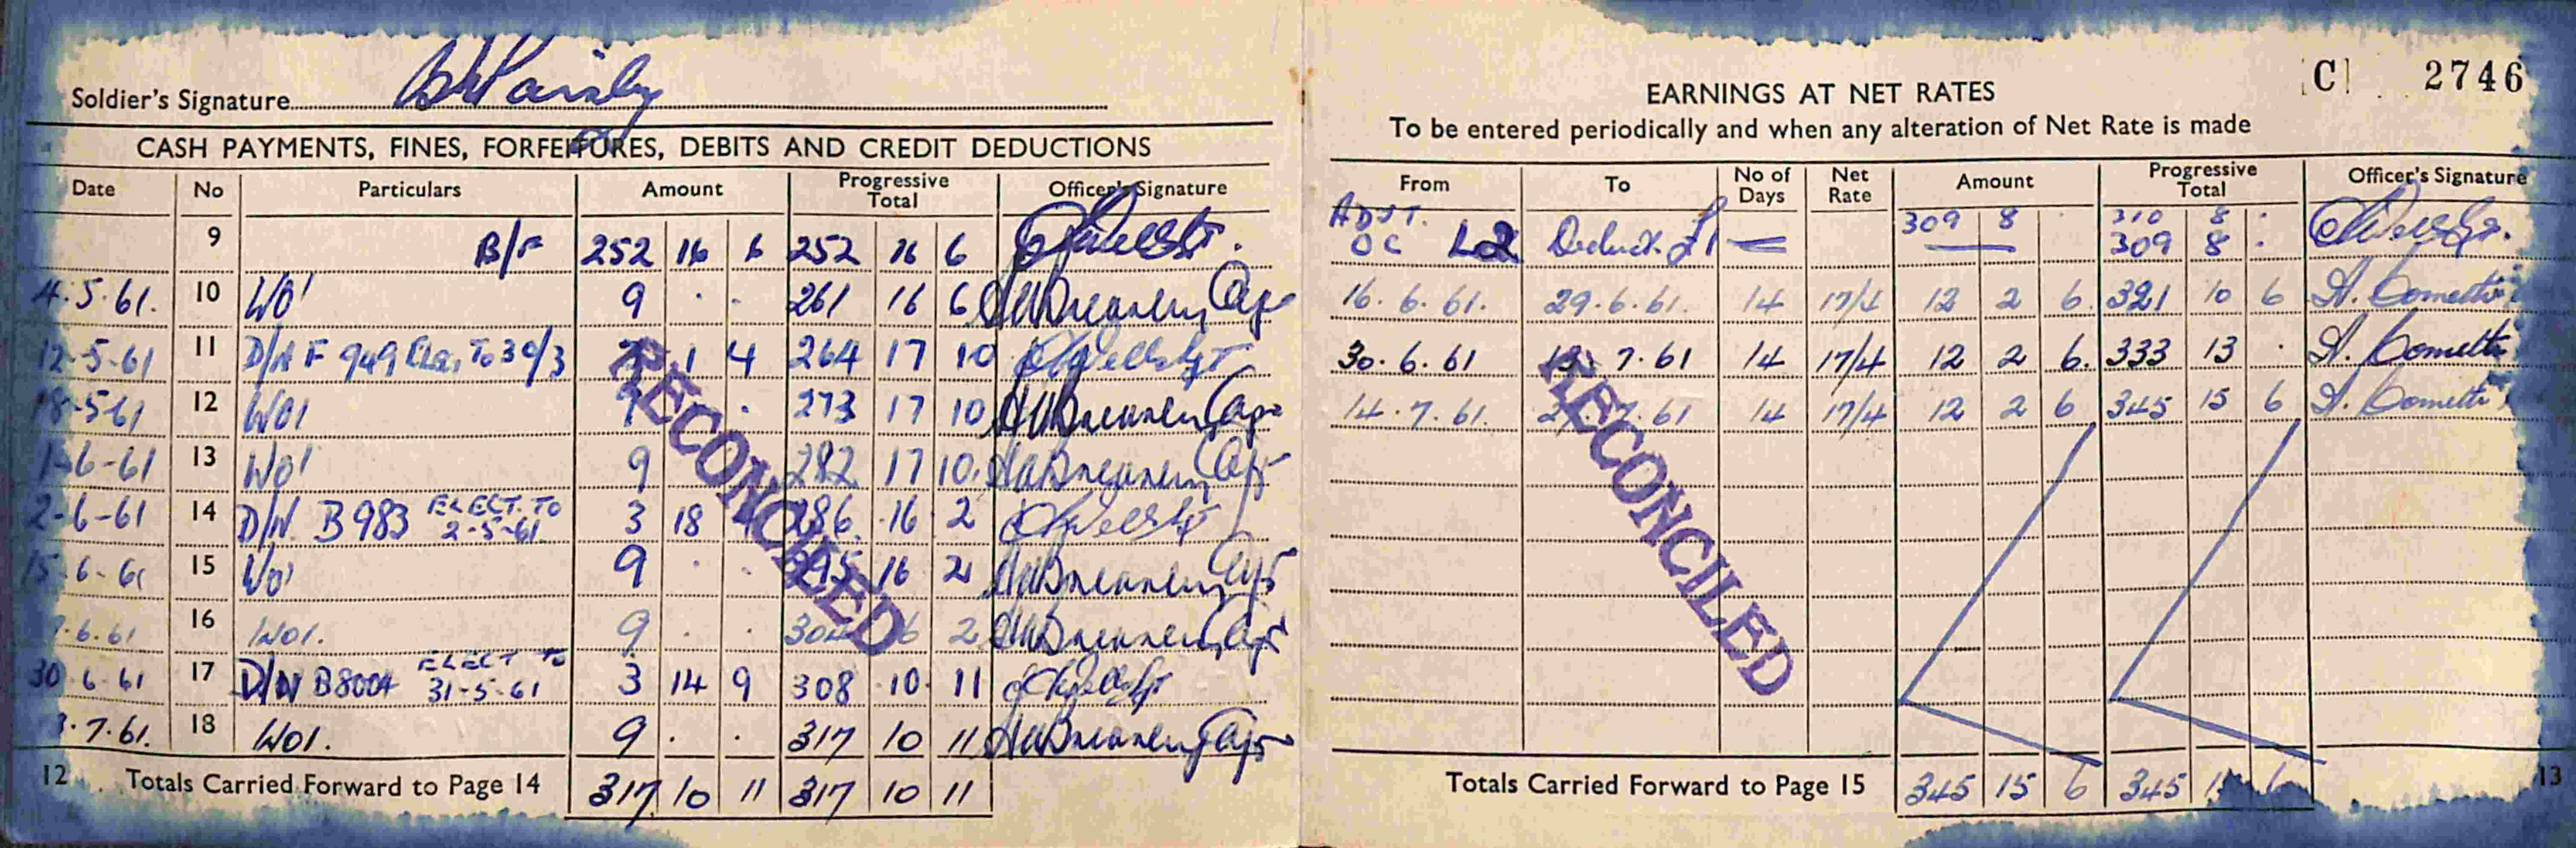 Soldier's Signature
CASH PAYMENTS, FINES, FORFEITURES, DEBITS AND CREDIT DEDUCTIONS
Date No Particulars Amount Progressive Total Officer's Signature
9 B/F 252 16 6 252 16 6
4.5.61. 10 WO1 9 . . 261 16 6
12-5-61 11 D/N F 949 To 30/3 1 4 264 17 10
18-5-61 12 WO1 9 . . 273 17 10
1-6-61 13 WO1 9 282 17 10
2-6-61 14 D/N. B 983 ELECT. TO 2-5-61 3 18 286 16 2
15.6.61 15 WO1 9 . . 295 16 2
.6.61 16 WO1. 9 . . 304 16 2
30.6.61 17 D/N B8004 ELECT TO 31-5-61 3 14 9 308 10 11
.7.61. 18 WO1. 9 . . 317 10 11
12 Totals Carried Forward to Page 14 317 10 11 317 10 11
RECONCILED
C 2746
EARNINGS AT NET RATES
To be entered periodically and when any alteration of Net Rate is made
From To No of Days Net Rate Amount Progressive Total Officer's Signature
ADJT. 309 8 . 310 8 .
OC L2 Deduct. £1 309 8 .
16.6.61. 29.6.61. 14 17/4 12 2 6 321 10 6 A. Cometti
30.6.61 13.7.61 14 17/4 12 2 6. 333 13 . A. Cometti
14.7.61. 2 .7.61 14 17/4 12 2 6 345 15 6 A. Cometti
RECONCILED
Totals Carried Forward to Page 15 345 15 6 345 15 6
13